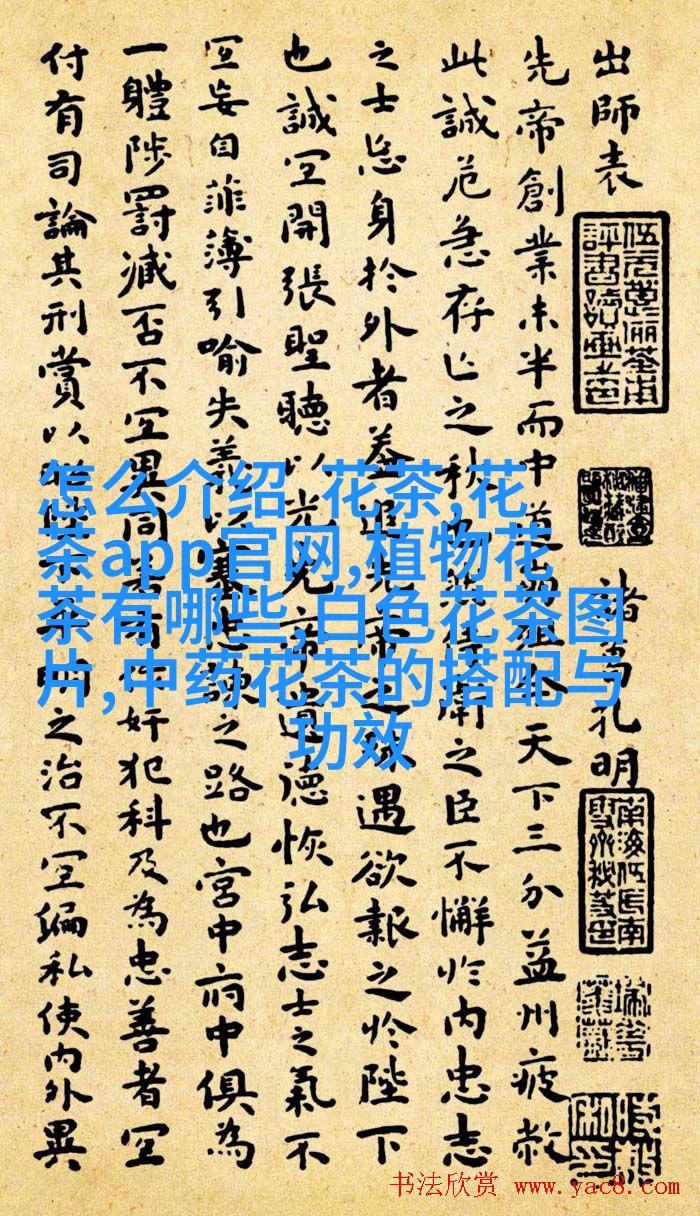 出師表
諸葛孔明
先帝創業未半而中道崩殂今天下三分益州疲敝
此誠危急存亡之秋也然侍衛之臣不懈於内忠志
之士忘身於外者蓋追先帝之殊遇欲報之於陛下
也誠宜開張聖聽以光先帝遺德恢弘志士之氣不
宜妄自菲薄引喻失義以塞忠諫之路也宮中府中俱為
一體陟罰臧否不宜異同若有作奸犯科及為忠善者宜
付有司論其刑賞以昭陛下平明之治不宜偏私使内外異
怎么介绍 花茶,花
茶app官网,植物花
茶有哪些,白色花茶图
片,中药花茶的搭配与
功效
书法欣赏 www.yac8.com